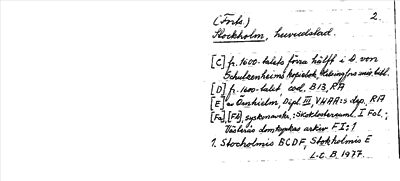 (Forts.) 2.
Stockholm, huvudstad.
[C] fr. 1600-talets förra hälft i D. von
Schulzenheims kopiebok, Helsingfors univ. bibl.
[D] fr. 1600-talet, cod. B 13, RA
[E] av Örnhielm, Dipl. III, VHAA:s dep. RA
[Fa], [Fb], systemavskr.: Skoklostersaml. I Fol.;
Västerås domkyrkas arkiv F I:1
1. Stocholmis BCDF, Stokholmis E
L.C. B. 1977.